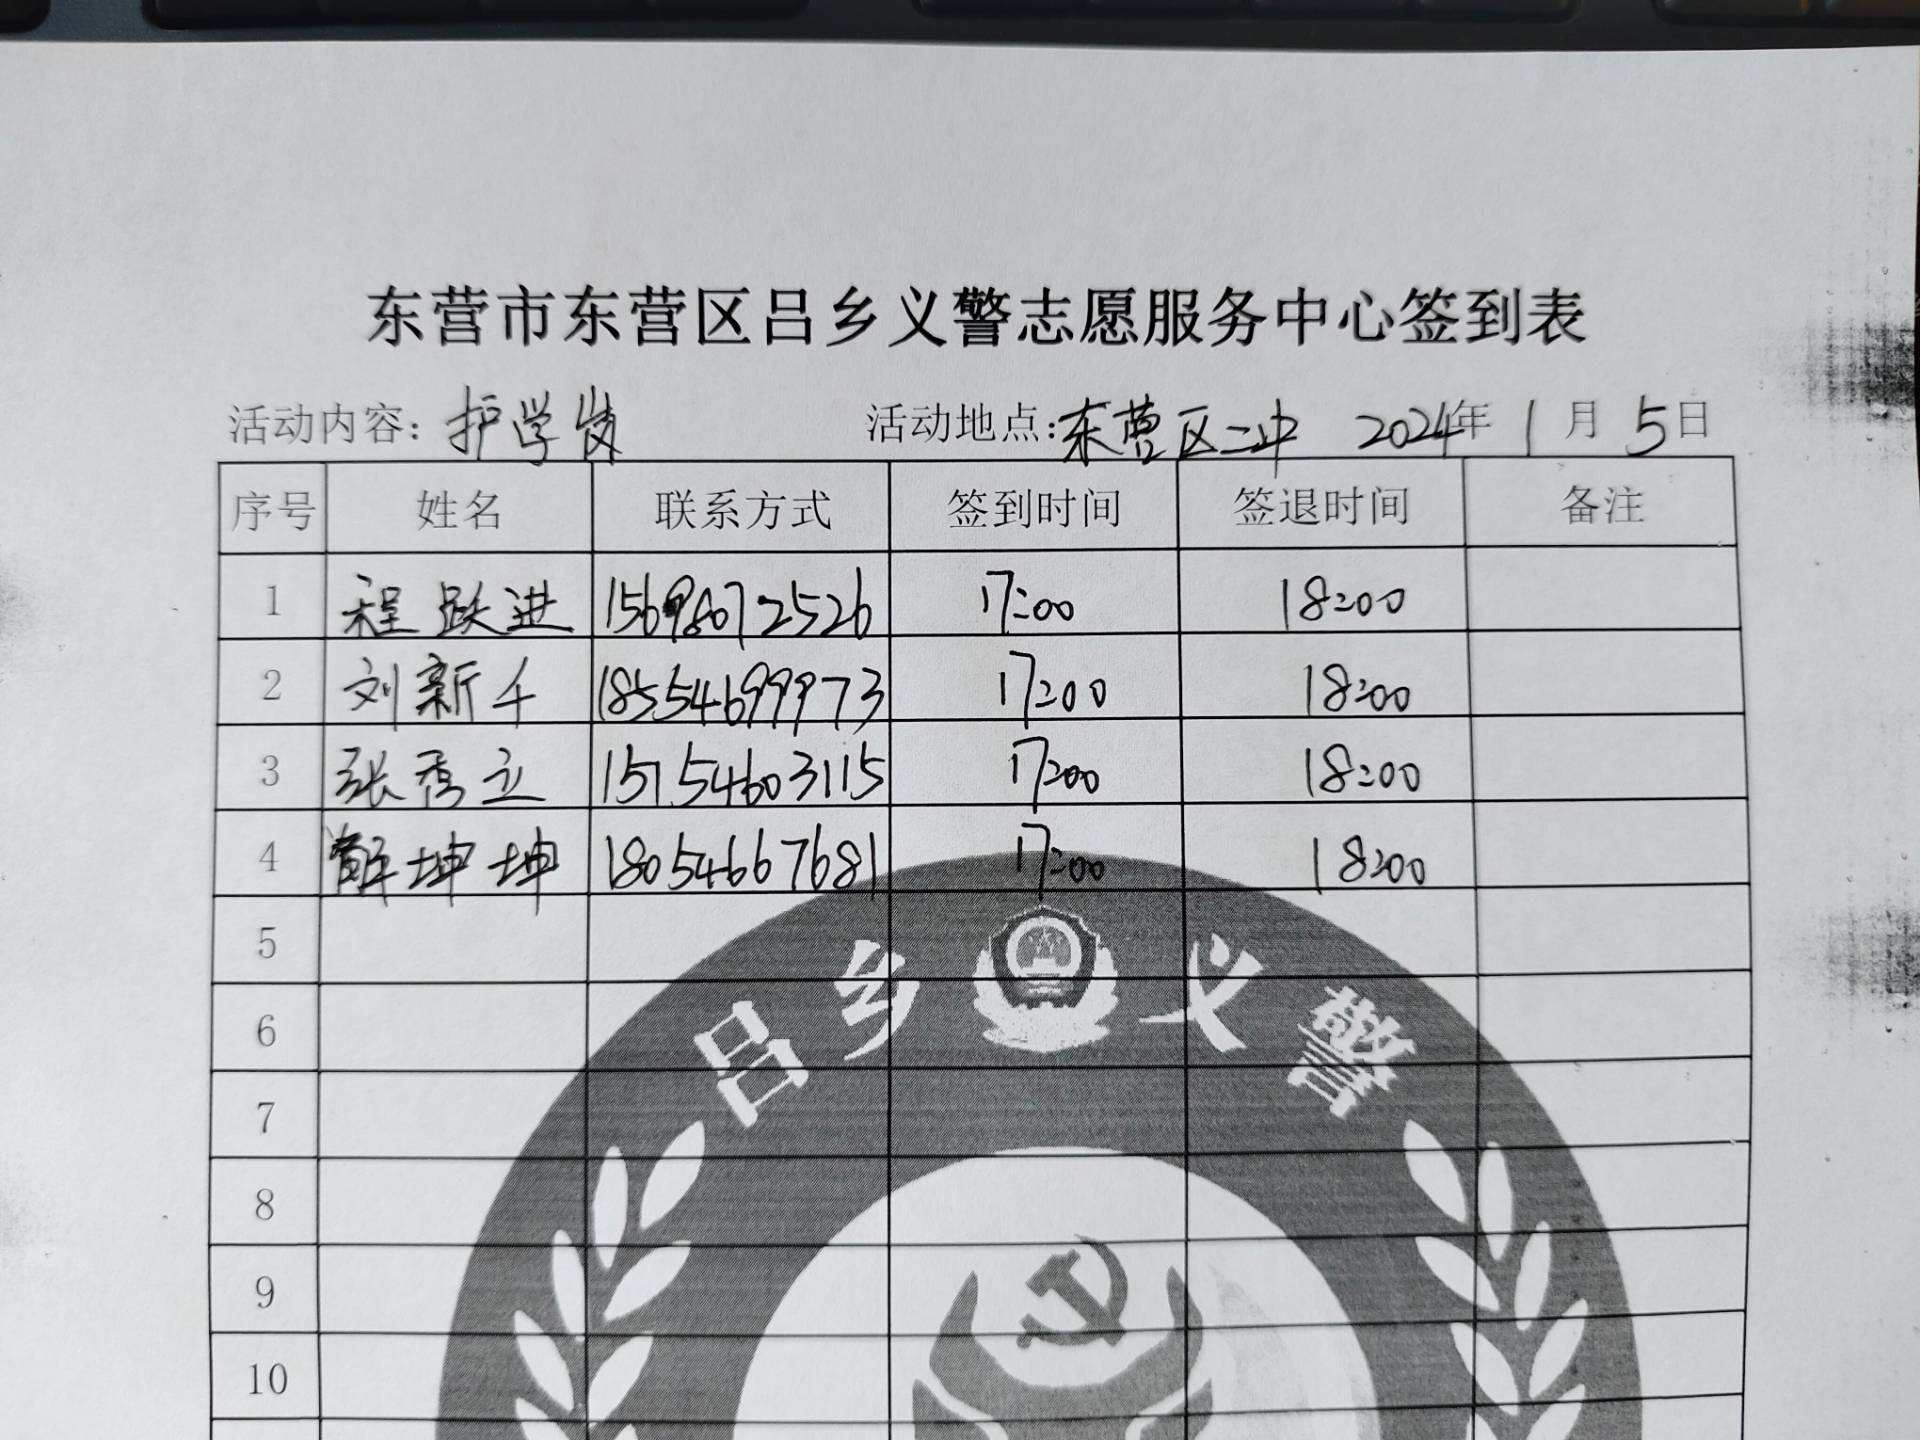 东营市东营区吕乡义警志愿服务中心签到表
活动内容: 护学岗 活动地点: 东营区二中 2024年 1月 5日
序号 姓名 联系方式 签到时间 签退时间 备注
1 程跃进 15698072526 17:00 18:00
2 刘新千 18554699973 17:00 18:00
3 张秀立 15154603115 17:00 18:00
4 坤坤 18054667681 17:00 18:00
5
6
7
8
9
10
吕乡义警